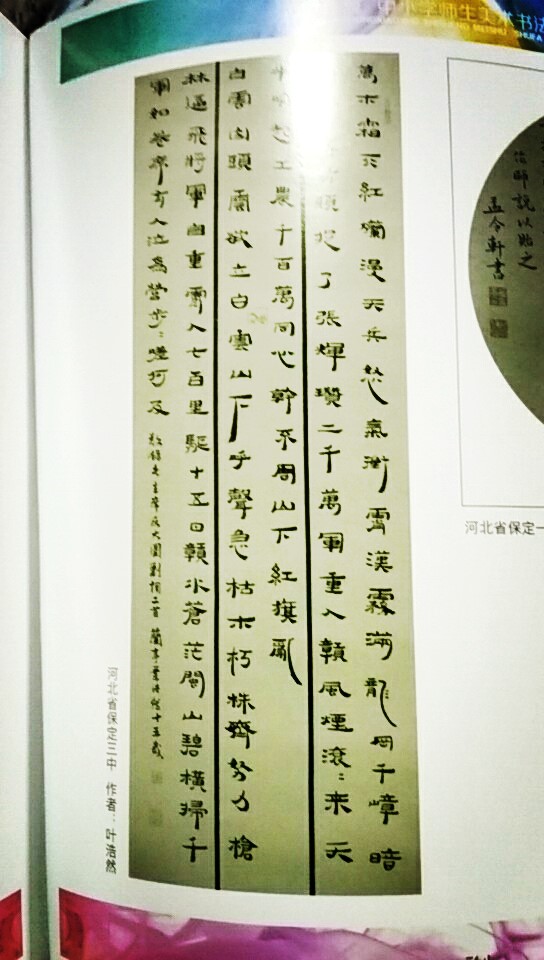 中小学师生美术书法
MEISHU SHUFA
萬木霜天紅爛漫天兵怒氣衝霄漢霧滿龍岡千嶂暗
頭捉了張輝瓚二千萬軍重入贛風煙滾〻來天
半喚起工農十百萬同心幹不周山下紅旗亂
白雲山頭雲欲立白雲山下呼聲急枯木朽株齊努力槍
林逼飛將軍自重霄入七百里驅十五日贛水蒼茫閩山碧橫掃千
軍如卷席有人泣為營步〻嗟何及
敬錄毛主席反大圍剿詞二首 蘭亭葉浩然十五歲
河北省保定三中 作者：叶浩然
師說以貽之
孟令軒書
河北省保定一